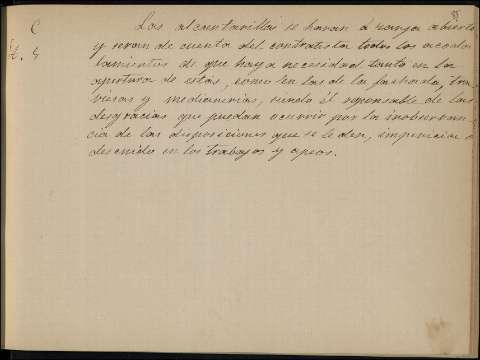 C
Las alcantarillas se harán á zanja abierta
y serán de cuenta del contratista todos los acoda
lamientos de que haya necesidad tanto en la
apertura de estas, como en las de la fachada, tra
viesas y medianerias, siendo él responsable de las
desgracias que puedan ocurrir por la inobservan
cia de las disposiciones que se le den, impericia o
descuido en los trabajos y apeos.